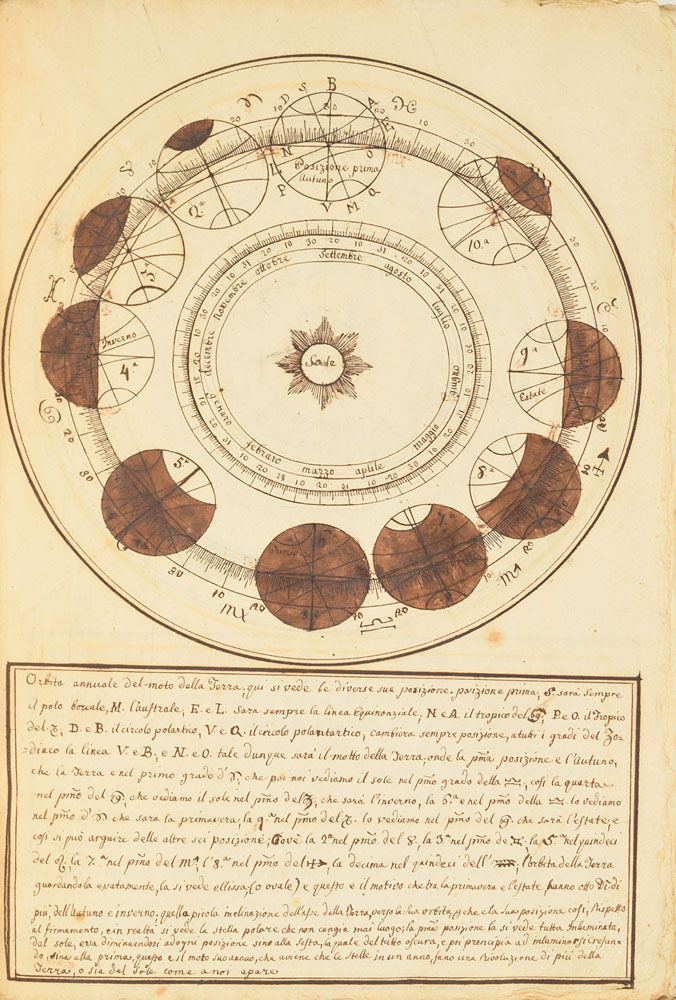 B
S
D
A
E
N
L
O
P
Q
V
M
Posizione prima
Autuno
2ª
3ª
Inverno
4ª
5ª
6ª
7ª
8ª
9ª
Estate
10.ª
Settembre
agosto
luglio
giugno
maggio
aplile
marzo
febraro
genaro
decimbre
Novembre
ottobre
Sole
Orbita annuale del moto della Terra, qui si vede le diverse sue posizione. posizione prima, S. sarà sempre
il polo boreale, M. l'australe; E. e L. sara sempre la linea Equinonziale; N e A. il tropico del ♋; P. e O. il Tropico
del ♑; D. e B. il circolo polartico, V e Q. il circolo polantartico, cambiera sempre posizione, a tutti i gradi del Zo=
=diaco la linea V. e B, e N. e O. tale dunque sara' il motto della Terra, onde la pmã posizione e l'Autuno,
che la Terra e nel primo grado d'♈, che poi noi vediamo il sole nel pmõ grado della ♎, così la quarta
nel pmõ del ♋, che vediamo il sole nel pmõ del ♑, che sarà l'inverno, la 6.ª e nel pmõ della ♎. lo vediamo
nel pmõ d'♈ che sara la primavera, la 9.ª nel pmõ del ♑. lo vediamo nel pmõ del ♋. che sarà l'estate, e
così si può arguire delle altre sei posizione; Cioè la 2ª nel pmõ del ♉, la 3.ª nel pmõ de ♊. la 5.ª nel quindeci
del ♌. la 7.ª nel pmõ del ♏, l'8.ª nel pmõ del ♐, la decima nel quindeci dell' ♒, l'orbita della Terra
guardandola esatamente, la si vede ellissa, (o ovale) e questo e il motivo che tra la primavera e l'estate hanno otto Dì di
più, dell'autuno e inverno. quella picola inclinazione dell'asse della Terra, verso la sua orbita, e che e la sua posizione così, Rispetto
al firmamento, e in realta si vede la stella polare che non cangia mai luogo; la pmã posizione la si vede tutta Inluminata,
del sole, e va diminuendosi ad ogni posizione sino alla sesta, la quale del tutto oscura, e poi prencipia ad inluminarsi cresun=
do, sina alla prima, questo e il moto suo anuo, che aviene che le stelle in un anno, fano una Rivoluzione di più della
Terra, o sia del sole come a noi apare